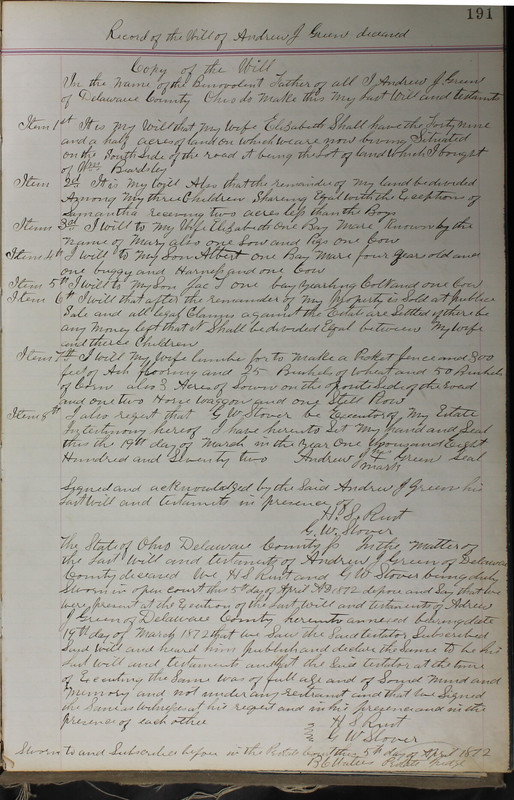 191
Record of the Will of Andrew J. Green deceased
Copy of the Will
In the Name of the Benevolent Father of all I Andrew J. Green
of Delaware County Ohio do make this my Last Will and testament
Item 1st It is my Will that my Wife Elizabeth Shall have the Forty nine
and a half acres of land on which we are now living Situated
on the South Side of the road it being the Lot of land Which I bought
of Wm Beardsley
Item 2d It is my Will Also that the remainder of my land be divided
Among my three Children Sharing Eqal With the Exseption of
Samantha receving two acres less than the Boys
Item 3rd I will to my Wife Elizabeth one Bay Mare Known by the
Name of Mary also one Sow and Pigs one Cow
Item 4th I will to my Son Albert one Bay Mare four year old and
one buggy and Harness and one Cow
Item 5th I will to my Son one bay yearling Colt and one Cow
Item 6th I will that after the remainder of My Property is Sold at Publice
Sale and all legal Claims against the Estate are Settled if there be
any Money left that it Shall be divided Eqal between My Wife
and three Children
Item 7th I will My Wife lumber for to Make a Picket fence and 300
feet of Ash flooring and 25 Bushels of Wheat and 50 Bushels
of Corn also 3 Acres of on the South Side of the road
and one two Horse Waggon and one Still Plow
Item 8th I also reqest that G W Stover be Executor of My Estate
In testimony hereof I have hereunto Set My hand and Seal
this the 19th day of March in the Year One thousand Eight
Hundred and Seventy two Andrew J. X Green Seal
mark
Signed and acknowledged by the Said Andrew J Green his
Last Will and testament in presence of
H. S. Rust
G. W. Stover
The State of Ohio Delaware County In the Matter of
the Last Will and testament of Andrew J Green of Delaware
County deceased We H S Rust and G W Stover being duly
Sworn in open court this 5th day of April AD 1872 depose and Say that we
were present at the Execution of the Last Will and testament of Andrew
J Green of Delaware County hereunto annexed bearing date
19th day of March 1872 that we Saw the Said testator Subscribed
Said Will and heard him publish and declare the Same to be his
Last Will and testament and that the Said testator at the time
of Executing the Same was of full age and of Sound Mind and
Memory and not under any restraint and that we Signed
the Same as witnesses at his reqest and in his presence and in the
presence of each other
H S Rust
G W Stover
Sworn to and Subscribed before in the Probate Court this 5th day of April 1872
B C Waters Probate Judge